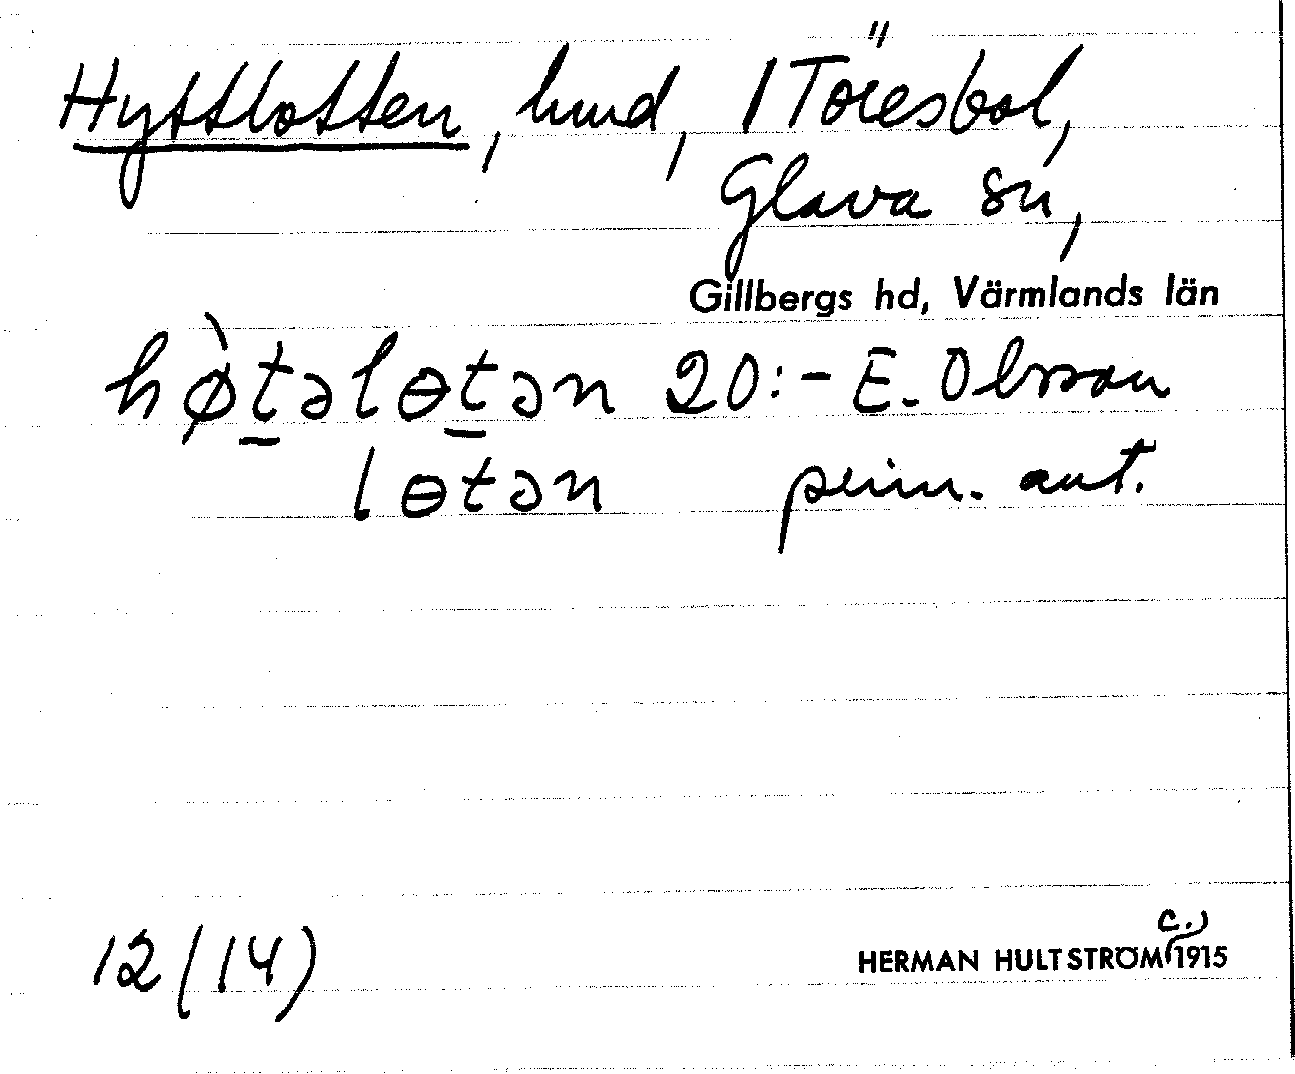 Hyttlotten, hmd, 1 Töresbol,
Glava sn,
Gillbergs hd, Värmlands län
hø̀tələtən 20:- E. Olsson
lɵtən prim. aut.
12 (14)
HERMAN HULTSTRÖM c.) 1915